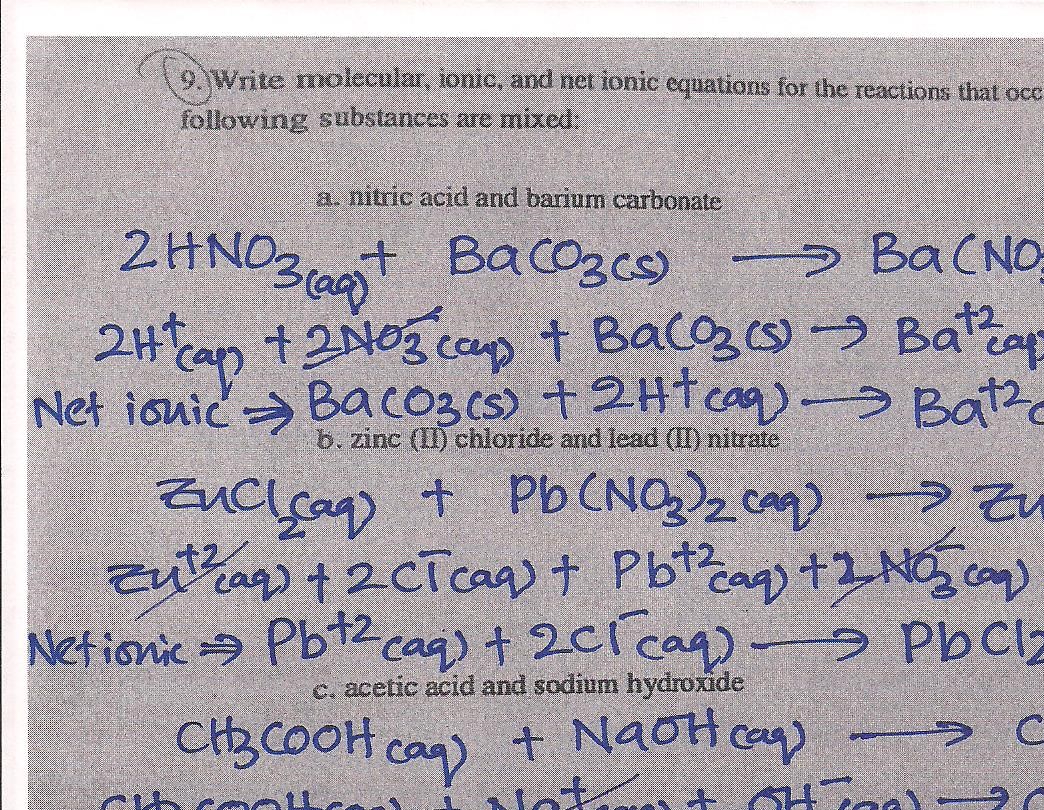 9. Write molecular, ionic, and net ionic equations for the reactions that occ
following substances are mixed:
a. nitric acid and barium carbonate
2HNO3(aq) + BaCO3(s) → Ba(NO3
2H+(aq) + 2NO3-(aq) + BaCO3(s) → Ba+2(aq
Net ionic ⇒ BaCO3(s) + 2H+(aq) → Ba+2(
b. zinc (II) chloride and lead (II) nitrate
ZnCl2(aq) + Pb(NO3)2(aq) → Zn
Zn+2(aq) + 2Cl-(aq) + Pb+2(aq) + 2NO3-(aq)
Net ionic ⇒ Pb+2(aq) + 2Cl-(aq) → PbCl2
c. acetic acid and sodium hydroxide
CH3COOH(aq) + NaOH(aq) → C
CH3COOH(aq) + Na+(aq) + OH-(aq) → C